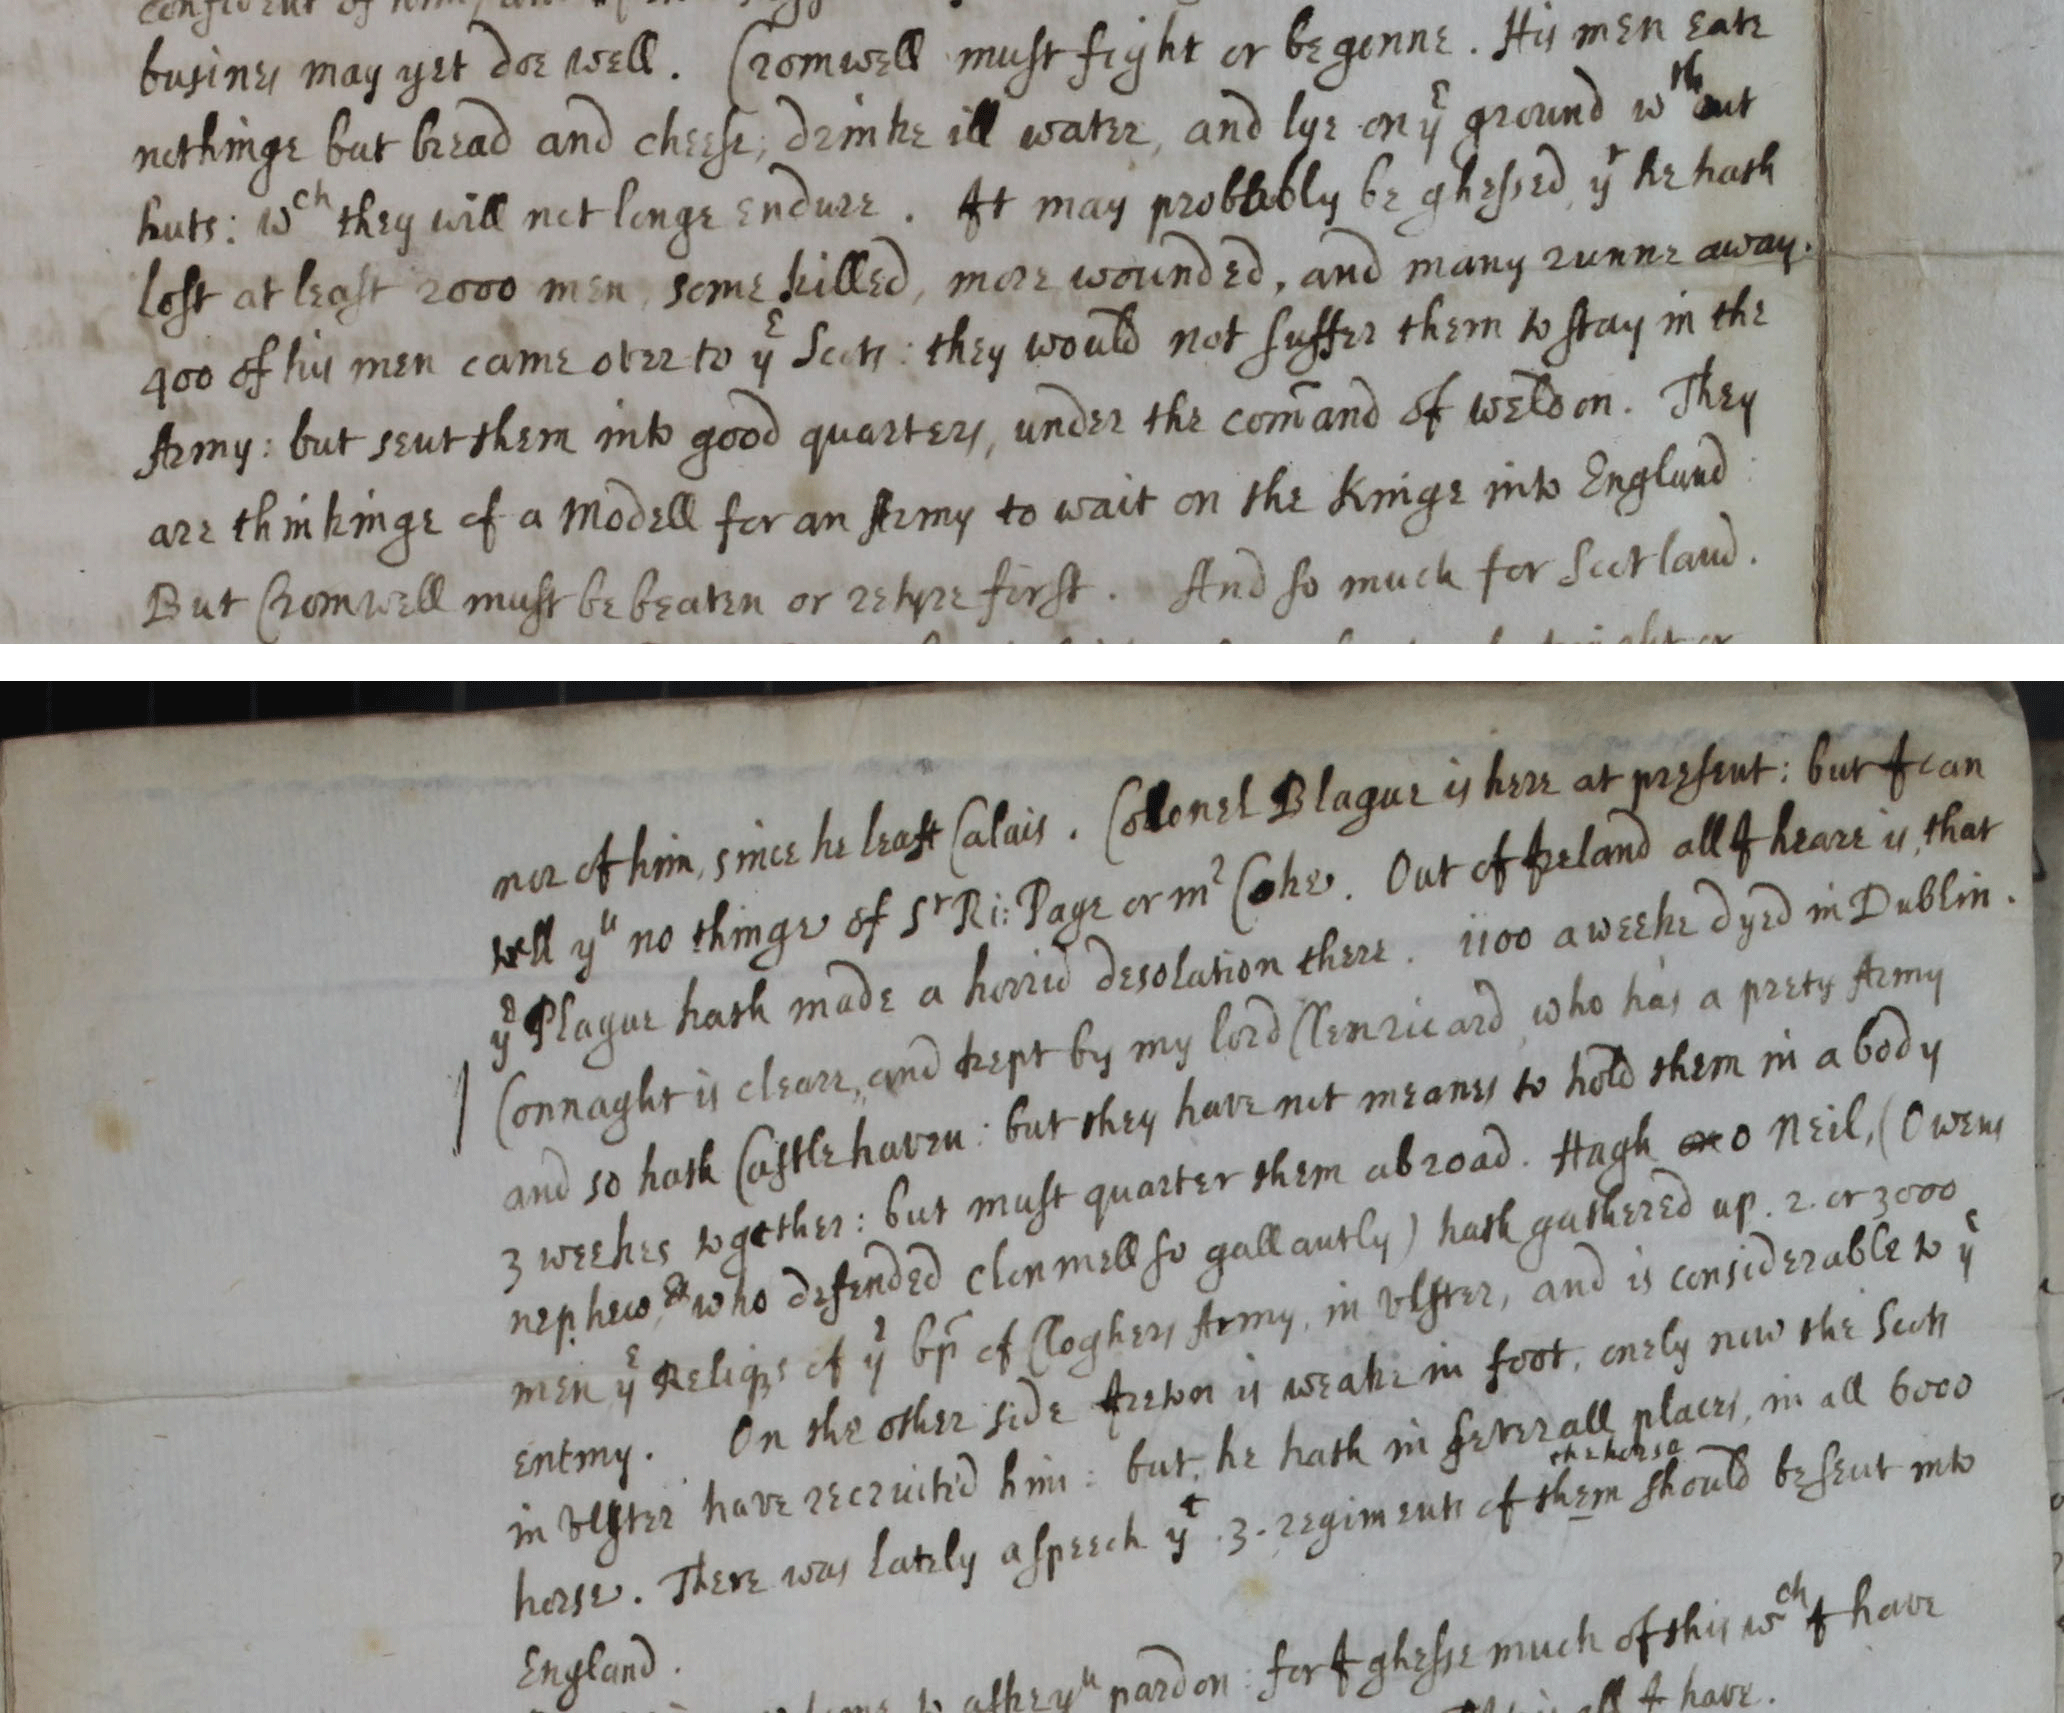 busines may yet doe well. Cromwell must fight or be gonne. His men eate
nothinge but bread and cheese, drinke ill water, and lye on yᵉ ground wᵗʰout
huts: wᶜʰ they will not longe endure. It may probbably be ghessed, yᵗ he hath
lost at least 2000 men, some killed, more wounded, and many runne away.
400 of his men came over to yᵉ Scots: they would not suffer them to stay in the
Army: but sent them into good quarters, under the com̄and of weldon. They
are thinkinge of a Modell for an Army to wait on the Kinge into England:
But Cromwell must be beaten or retyre first. And so much for Scotland.
nor of him, since he leaft Calais. Collonel Blague is here at present: but I can
tell yᵘ no thinge of Sʳ Ri: Page or mʳ Coke. Out of Ireland all I heare is, that
yᵉ Plague hath made a horrid desolation there. 1100 a weeke dyed in Dublin.
Connaght is cleare, and kept by my lord Clenricard, who has a prety Army
and so hath Castlehaven: but they have not meanes to hold them in a body
3 weekes together: but must quarter them abroad. Hugh o Neil, (Owens
nephew, who defended Clonmell so gallantly) hath gathered up. 2. or 3000
men yᵉ Reliqes of yᵉ bp̄ of Cloghers Army, in Ulster, and is considerable to yᵉ
enemy. On the other side Ireton is weake in foot, onely now the Scots
in Ulster have recruited him: but, he hath in severall places, in all 6000
the horse
horse. There was lately a speech yᵗ .3. regiments of them should be sent into
England.
to aske yᵘ pardon: for I ghesse much of this wᶜʰ I have
all I have.